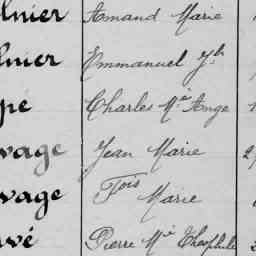 lnier Amand Marie
lnier Emmanuel Jh
pé Charles Mie Ange
vage Jean Marie
vage Fois Marie
vé Pierre Mie Théophile